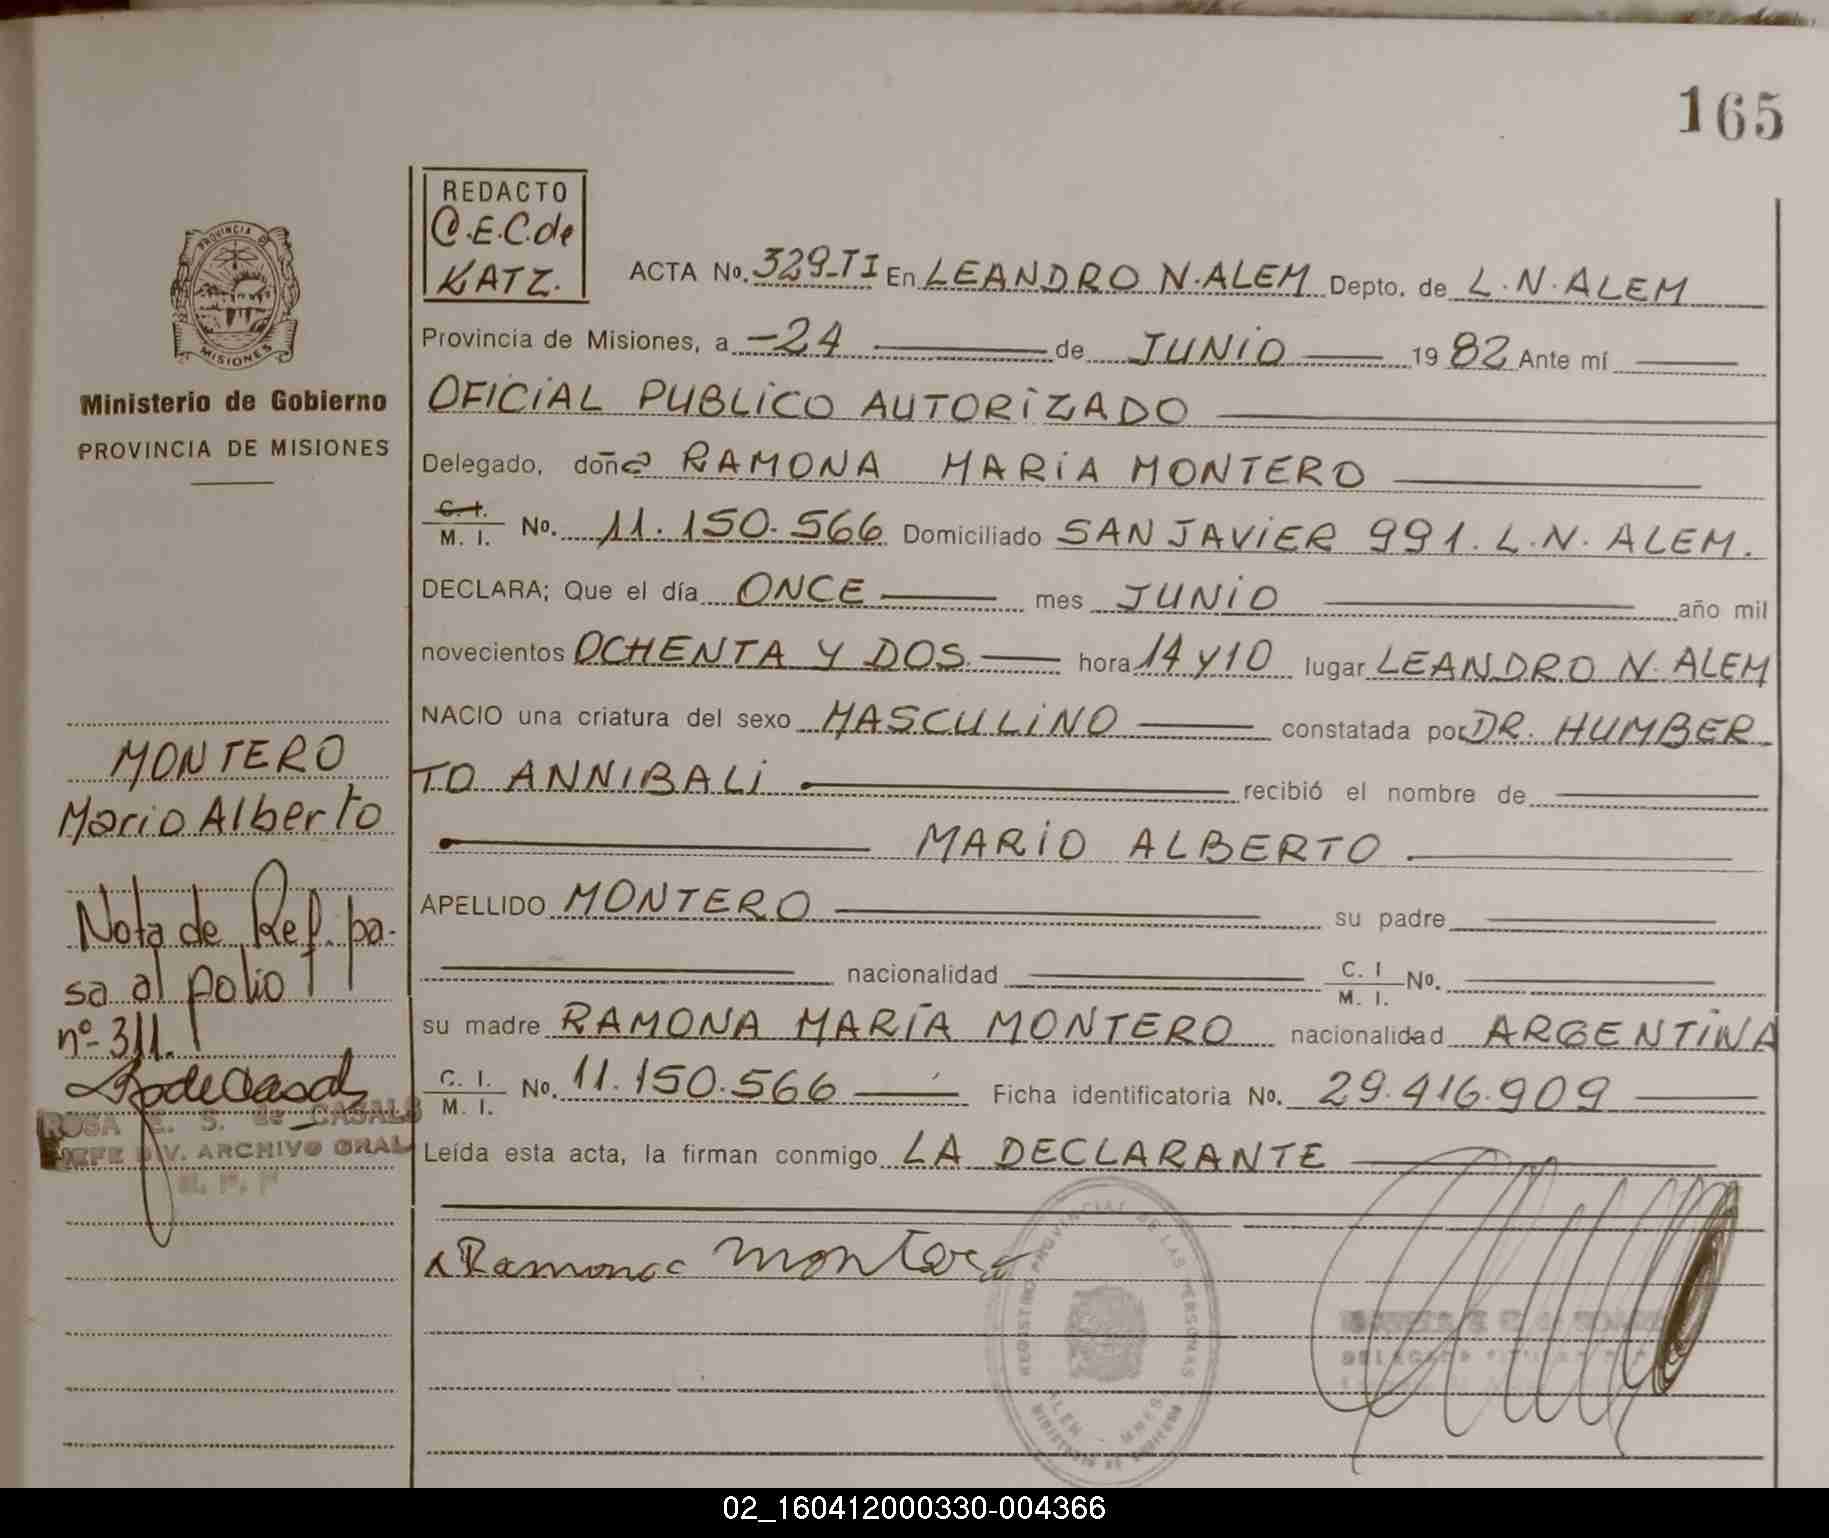 165
REDACTO
C.E.C. de
KATZ.
PROVINCIA DE
MISIONES
Ministerio de Gobierno
PROVINCIA DE MISIONES
ACTA No. 329-TI En LEANDRO N. ALEM Depto. de L. N. ALEM
Provincia de Misiones, a -24 de JUNIO 1982 Ante mí
OFICIAL PUBLICO AUTORIZADO
Delegado, doña RAMONA MARIA MONTERO
C. I.
M. I. No. 11.150.566 Domiciliado SAN JAVIER 991. L.N. ALEM.
DECLARA; Que el día ONCE mes JUNIO año mil
novecientos OCHENTA Y DOS. hora 14 y 10 lugar LEANDRO N. ALEM
NACIO una criatura del sexo MASCULINO constatada por DR. HUMBER
TO ANNIBALI recibió el nombre de
MARIO ALBERTO
APELLIDO MONTERO su padre
nacionalidad C. I M. I. No.
su madre RAMONA MARÍA MONTERO nacionalidad ARGENTINA
C. I. M. I. No. 11.150.566 Ficha identificatoria No. 29.416.909
Leída esta acta, la firman conmigo LA DECLARANTE
Ramona Montero
REGISTRO PROVINCIAL DE LAS PERSONAS
MINISTERIO DE GOBIERNO
ALEM MNES
MONTERO
Mario Alberto
Nota de Ref. pa-
sa al folio
nº 311.
ROSA E. S. de CASALS
JEFE DIV. ARCHIVO GRAL
02_160412000330-004366